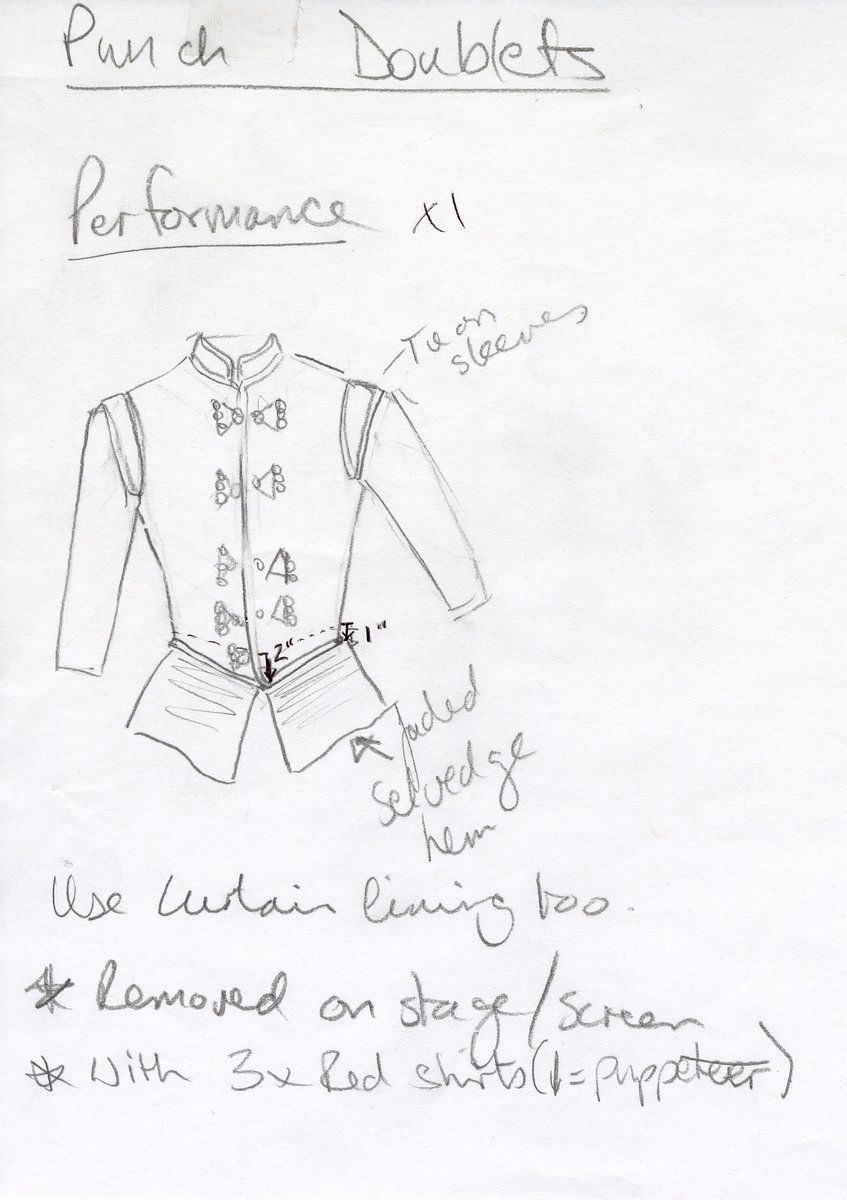 Punch Doublets
Performance x1
Tie on
sleeves
1"
2"
faded
selvedge
hem
Use curtain lining too.
* Removed on stage/screen
* With 3x Red shirts (1=puppeteer)